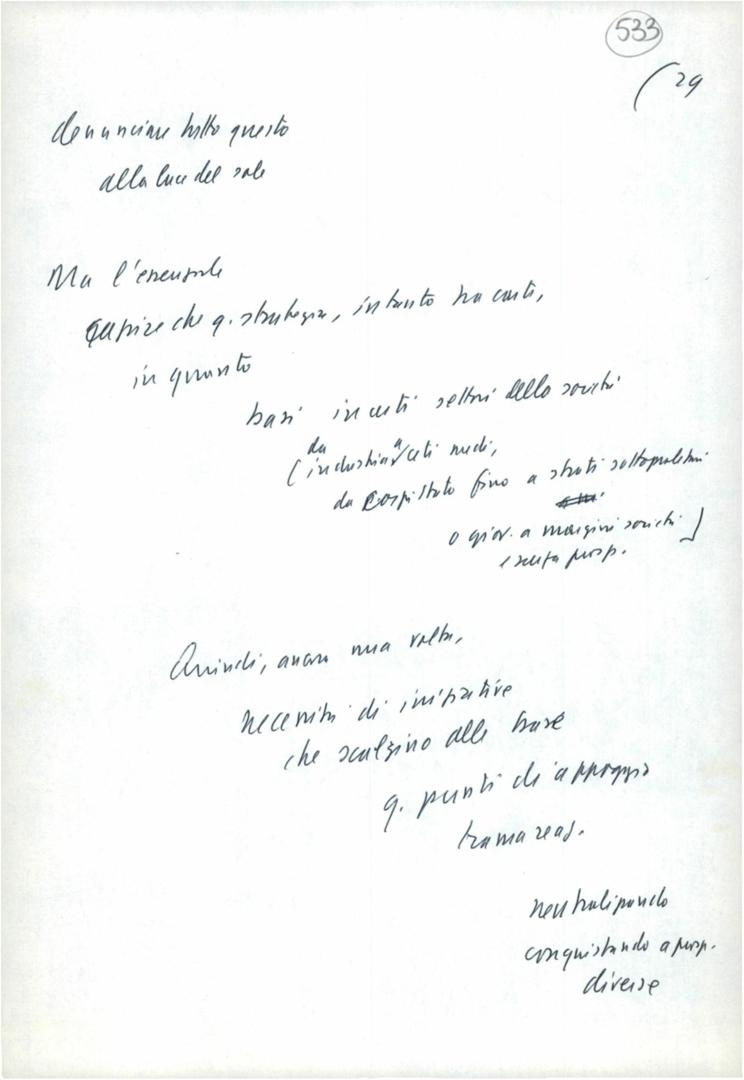 533
(29
denunciare tutto questo
alla luce del sole
Ma l'essenziale
capire che q. strategia, intanto ha carte,
in quanto
basi in certi settori della società
(da industria a ceti medi,
da fino a strati sottoproletari
o giov. a margini società)
e senza prosp.
Quindi, ancora una volta,
necessità di iniziative
che scalzino alla base
q. punti di appoggio
trama reaz.
neutralizzando
conquistando a prosp.
diverse